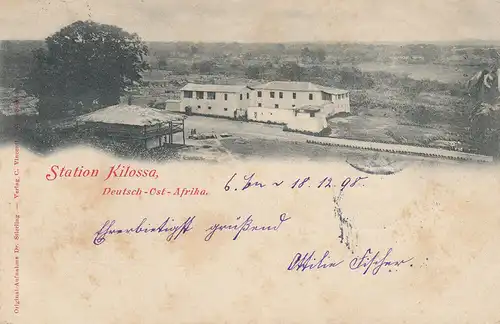 Station Kilossa,
Deutsch-Ost-Afrika.
18.12.98.
Ehrerbietigst grüßend
Ottilie Fischer.
Original-Aufnahme Dr. Stierling — Verlag C. Vincenti